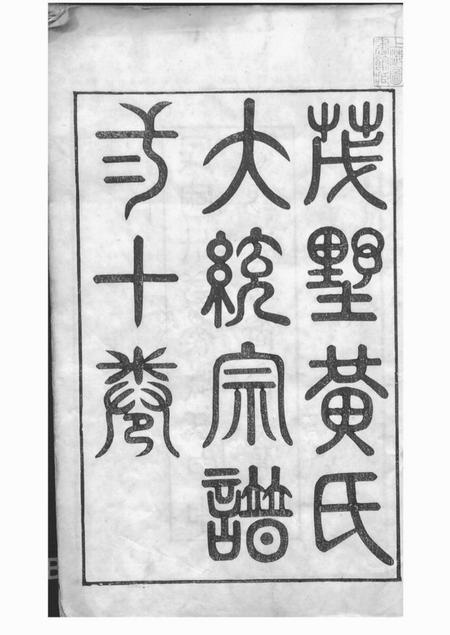 茂墅黃氏
大統宗譜
十卷